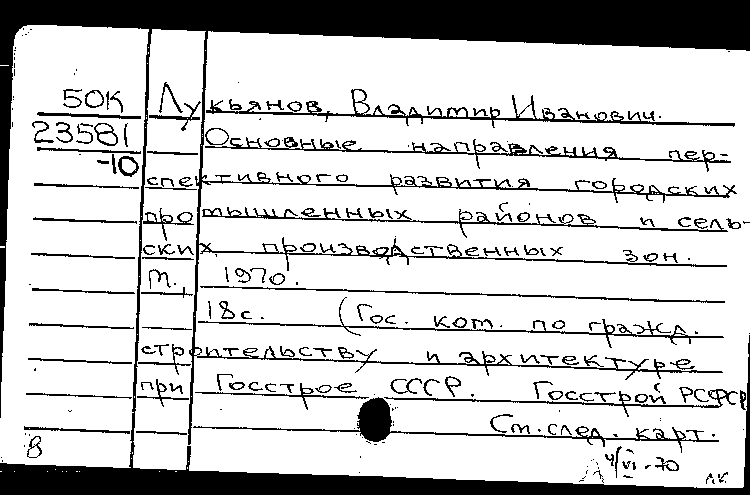 50К Лукьянов, Владимир Иванович.
23581 Основные направления пер-
-10
спективного развития городских
промышленных районов и сель-
ских производственных зон.
М., 1970.
18с. (Гос. ком. по гражд.
строительству и архитектуре
при Госстрое СССР. Госстрой РСФСР
См. след. карт.
В
4/VI-70
лк